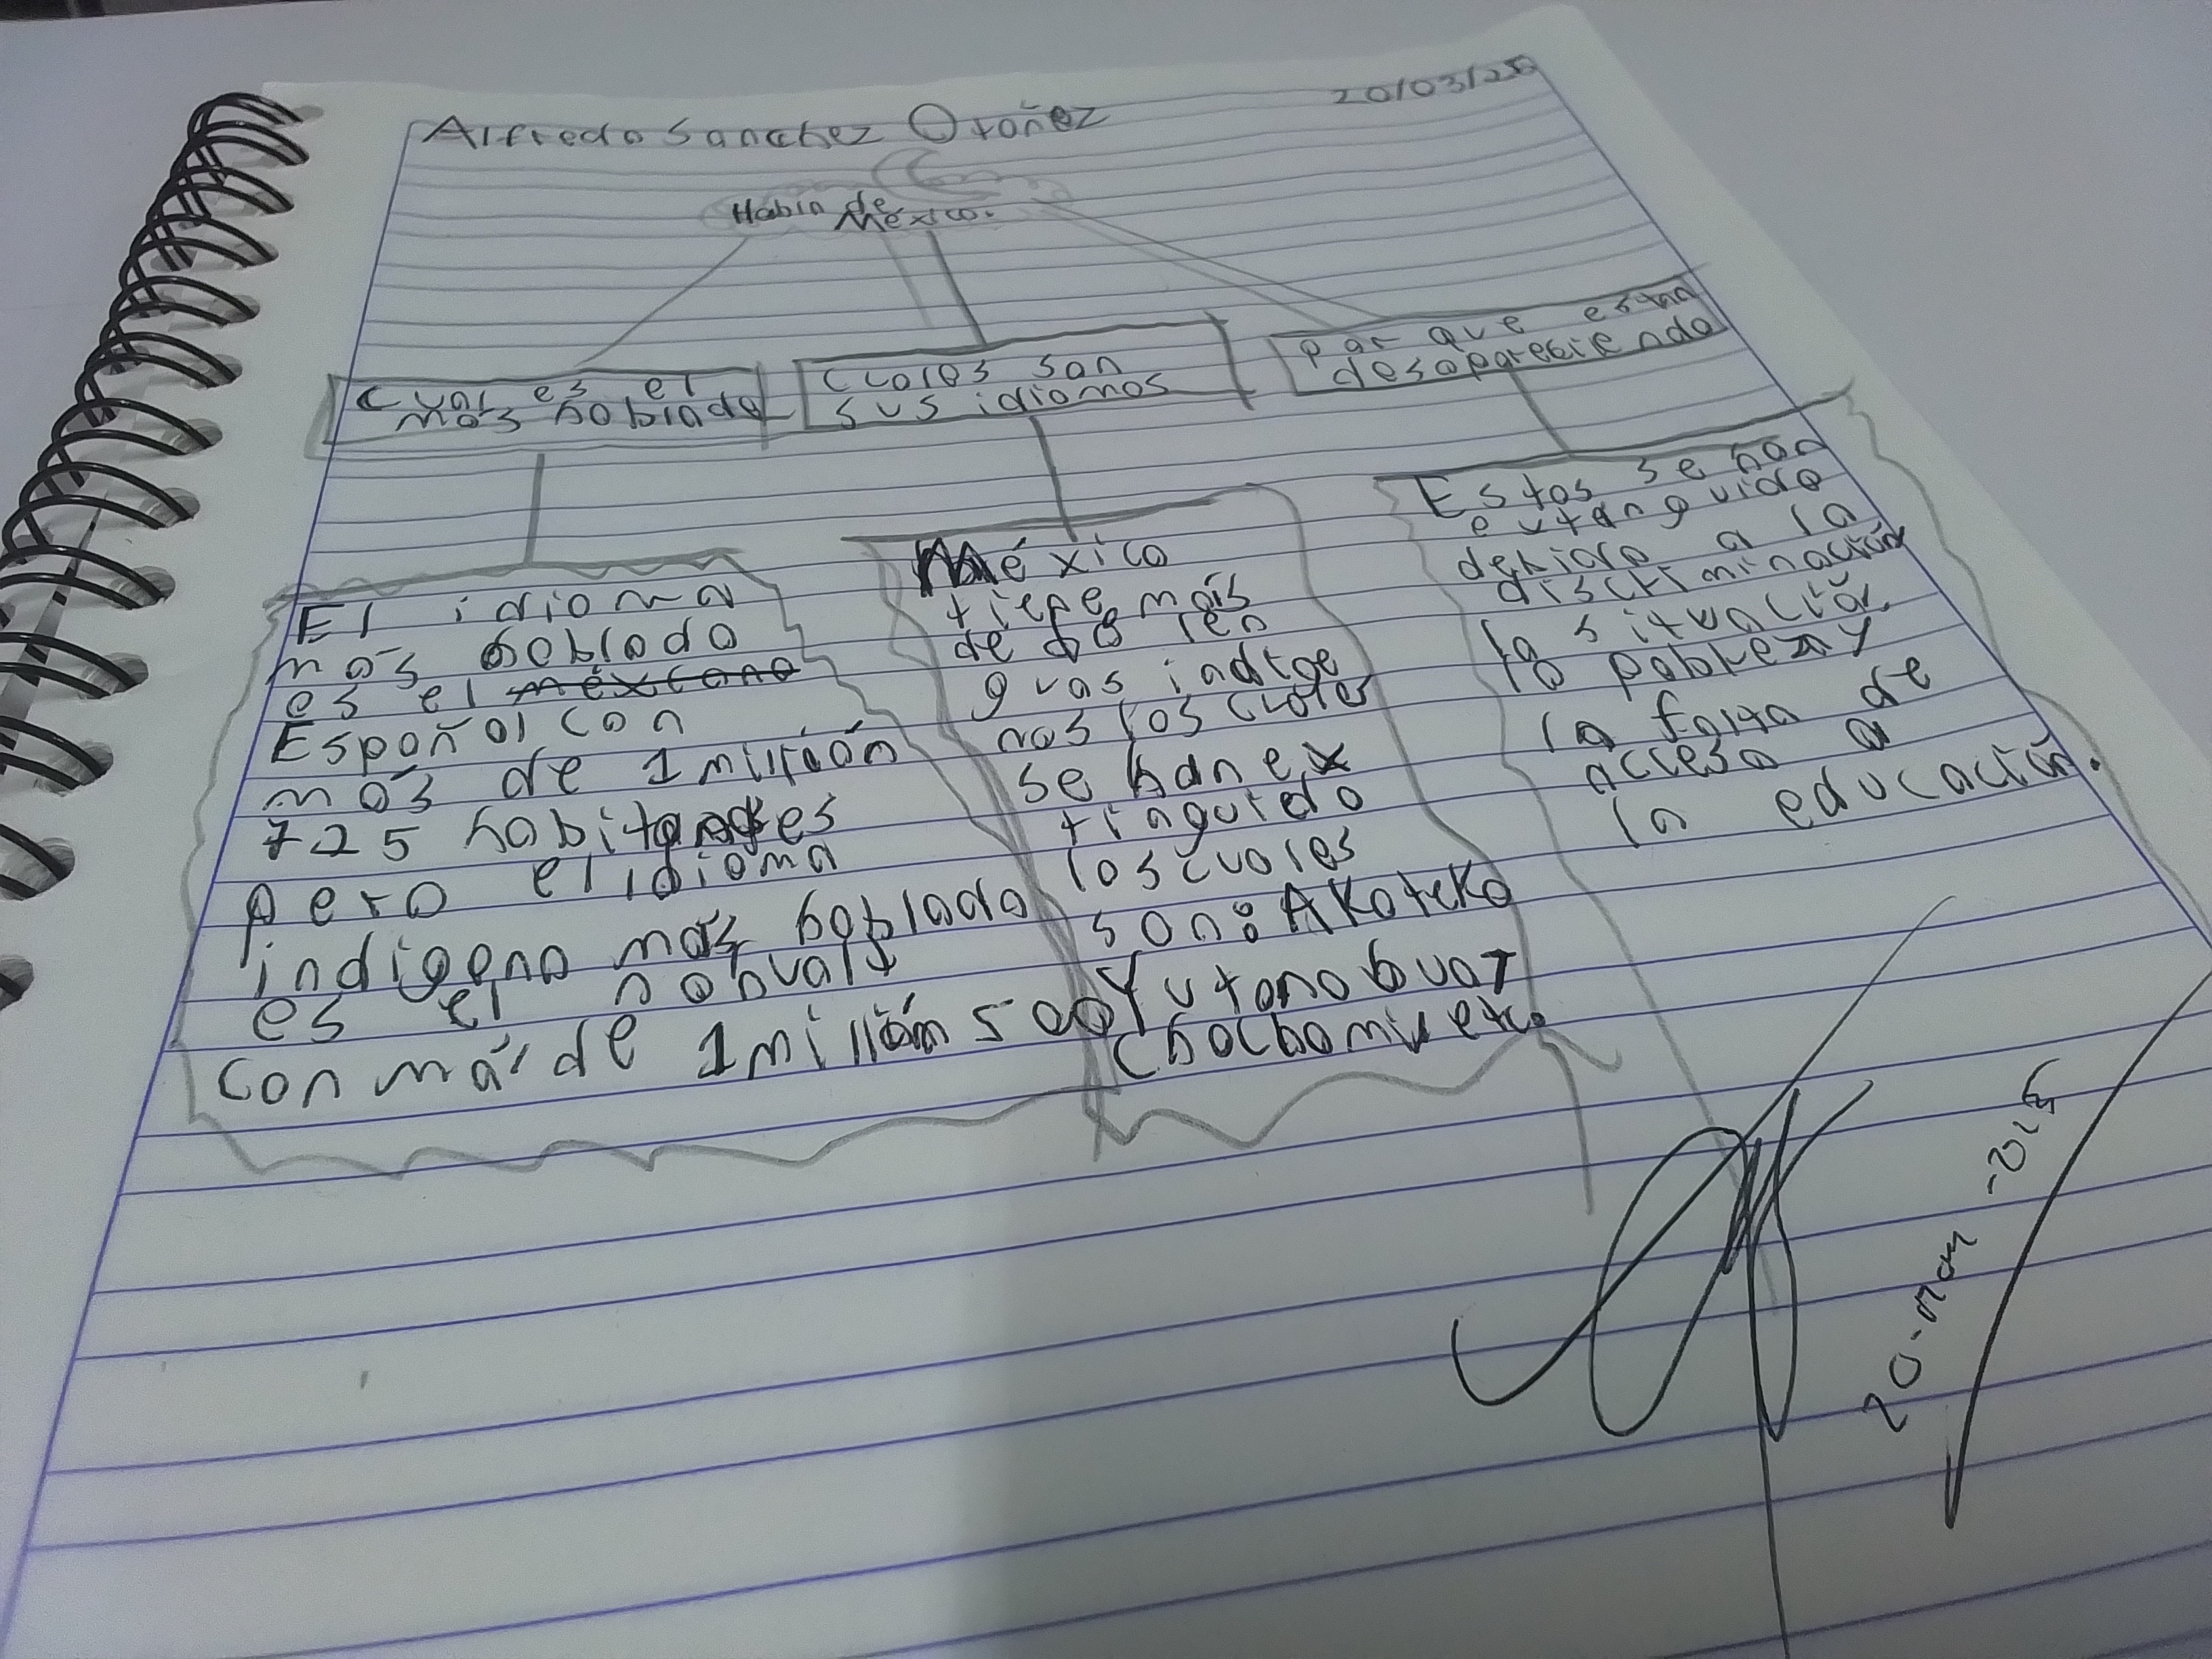 Alfredo Sanchez Otañez
20/03/25
Habla de
México.
Cual es el
mas hablado
Cuales son
sus idiomas
por que estan
desapareciendo
El idioma
más hablado
es el mexicano
Español con
más de 1 millón
725 habitantes
pero el idioma
indigena más hablado
es el nahualt
con más de 1 millón 500
México
tiene más
de 68 len
guas indige
nas los cuales
se han ex
tinguido
los cuales
son: Akateko
Yutonahuat
Chochomix etc.
Estos se han
extanguido
debido a la
discriminación
la situación
la pobreza y
la falta de
acceso a
la educación.